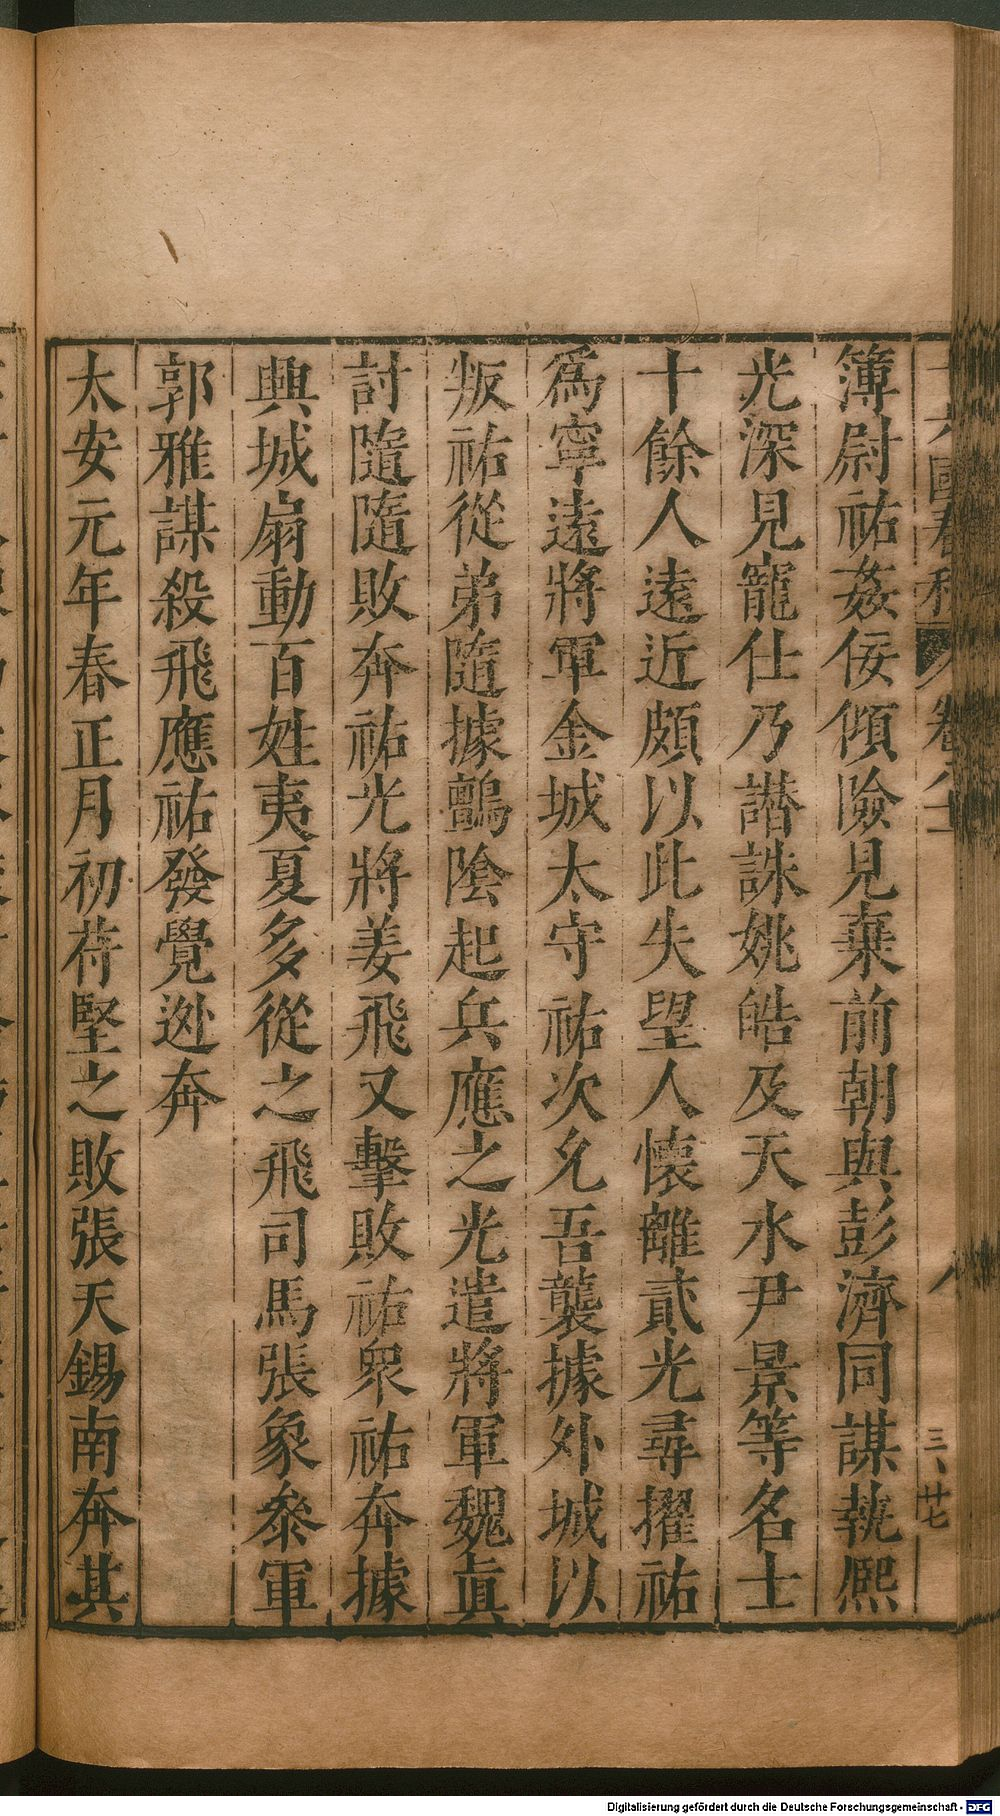 簿尉祐姦佞傾險見棄前朝與彭濟同謀執熙
光深見寵仕乃譖誅姚皓及天水尹景等名士
十餘人遠近頗以此失望人懷離貳光尋擢祐
爲寧遠將軍金城太守祐次允吾襲據外城以
叛祐從弟隨據鸇陰起兵應之光遣將軍魏眞
討隨隨敗奔祐光將姜飛又擊敗祐眾祐奔據
興城扇動百姓夷夏多從之飛司馬張象參軍
郭雅謀殺飛應祐發覺迯奔
太安元年春正月初苻堅之敗張天錫南奔其
三、廿七
Digitalisierung gefördert durch die Deutsche Forschungsgemeinschaft - DFG